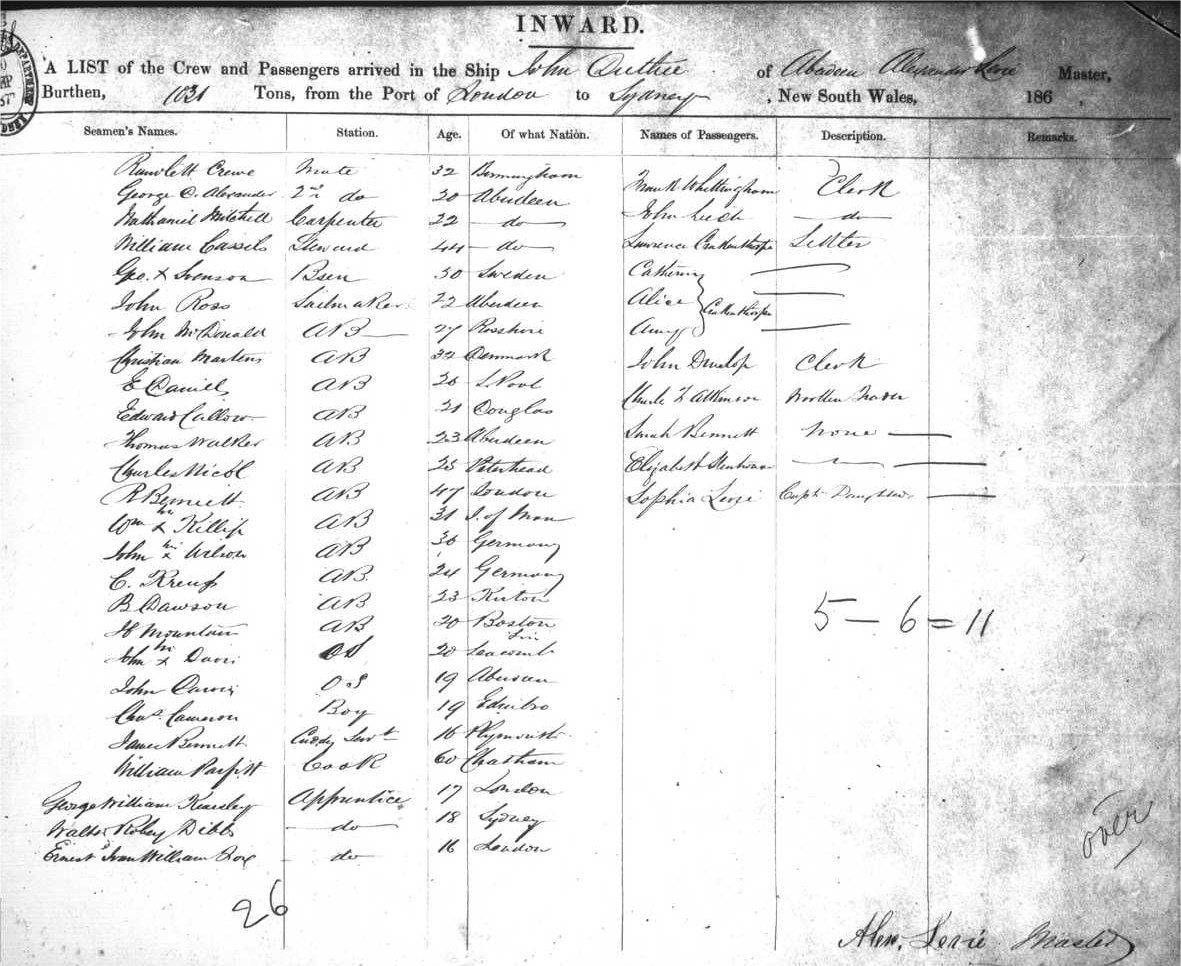 INWARD.
A LIST of the Crew and Passengers arrived in the Ship John Duthie of Aberdeen Alexander Levie Master,
Burthen, 1031 Tons, from the Port of London to Sydney, New South Wales, 186 ,
Seamen's Names. Station. Age. Of what Nation. Names of Passengers. Description. Remarks.
Crewe Mate 32 Birmingham Frank Whittingham Clerk
George C. Alexander 2nd do 20 Aberdeen John do
Nathaniel Mitchell Carpenter 22 do Lawrence
William Cassels Steward 44 do Catherine
Geo. x Svenson Bsen 30 Sweden Alice
John Ross Sailmaker 22 Aberdeen Amy
John McDonald AB 27 Rosshire John Dunlop Clerk
Christian Martens AB 32 Denmark
E Daniels AB 26 L.Pool Charles F Atkinson Woollen Trader
Edward Callow AB 21 Douglas
Thomas Walker AB 23 Aberdeen Sarah Bennett None
Charles Nicol AB 25 Peterhead Elizabeth
R Bennett AB 47 London Sophia Levie Capts Daughter
Wm x Killip AB 31 I. of Man
John x Wilson AB 36 Germany
C. Kreuß AB. 24 Germany
B Dawson AB 23 Kirton
H Mountain AB 20 Boston
Lin
John x Davis OS 20 Seacomb
John OS 19 Aberdeen
Chas. Cameron Boy 19 Edinbro
James Bennett Cuddy Servt 16 Plymouth
William Parfitt Cook 60 Chatham
George William Kearsley Apprentice 17 London
Walter Robey Dibb do 18 Sydney
Ernest Ivan William do 16 London
5 – 6 = 11
over
26
Alex. Levie Master